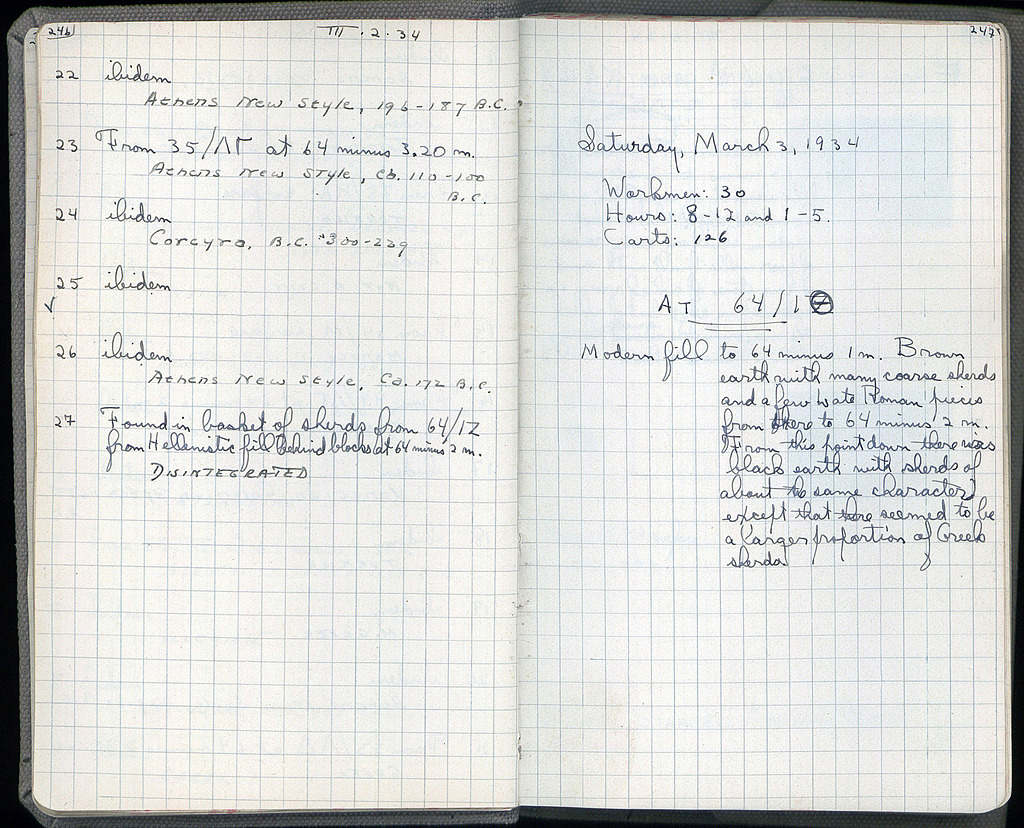 246
III . 2 . 34
22 ibidem
Athens New Style, 196-187 B.C.
23 From 35/ΛΓ at 64 minus 3.20 m.
Athens New Style, Ca. 110-100
B.C.
24 ibidem
Corcyra, B.C. 300-229
25 ibidem
✓
26 ibidem
Athens New Style, Ca. 172 B.C.
27 Found in basket of sherds from 64/IZ
from Hellenistic fill behind blocks at 64 minus 2 m.
DISINTEGRATED
247
Saturday, March 3, 1934
Workmen: 30
Hours: 8-12 and 1-5.
Carts: 126
AT 64/ΙΘ
Modern fill to 64 minus 1 m. Brown
earth with many coarse sherds
and a few late Roman pieces
from there to 64 minus 2 m.
From this point down there was
black earth with sherds of
about the same character,
except that there seemed to be
a larger proportion of Greek
sherds